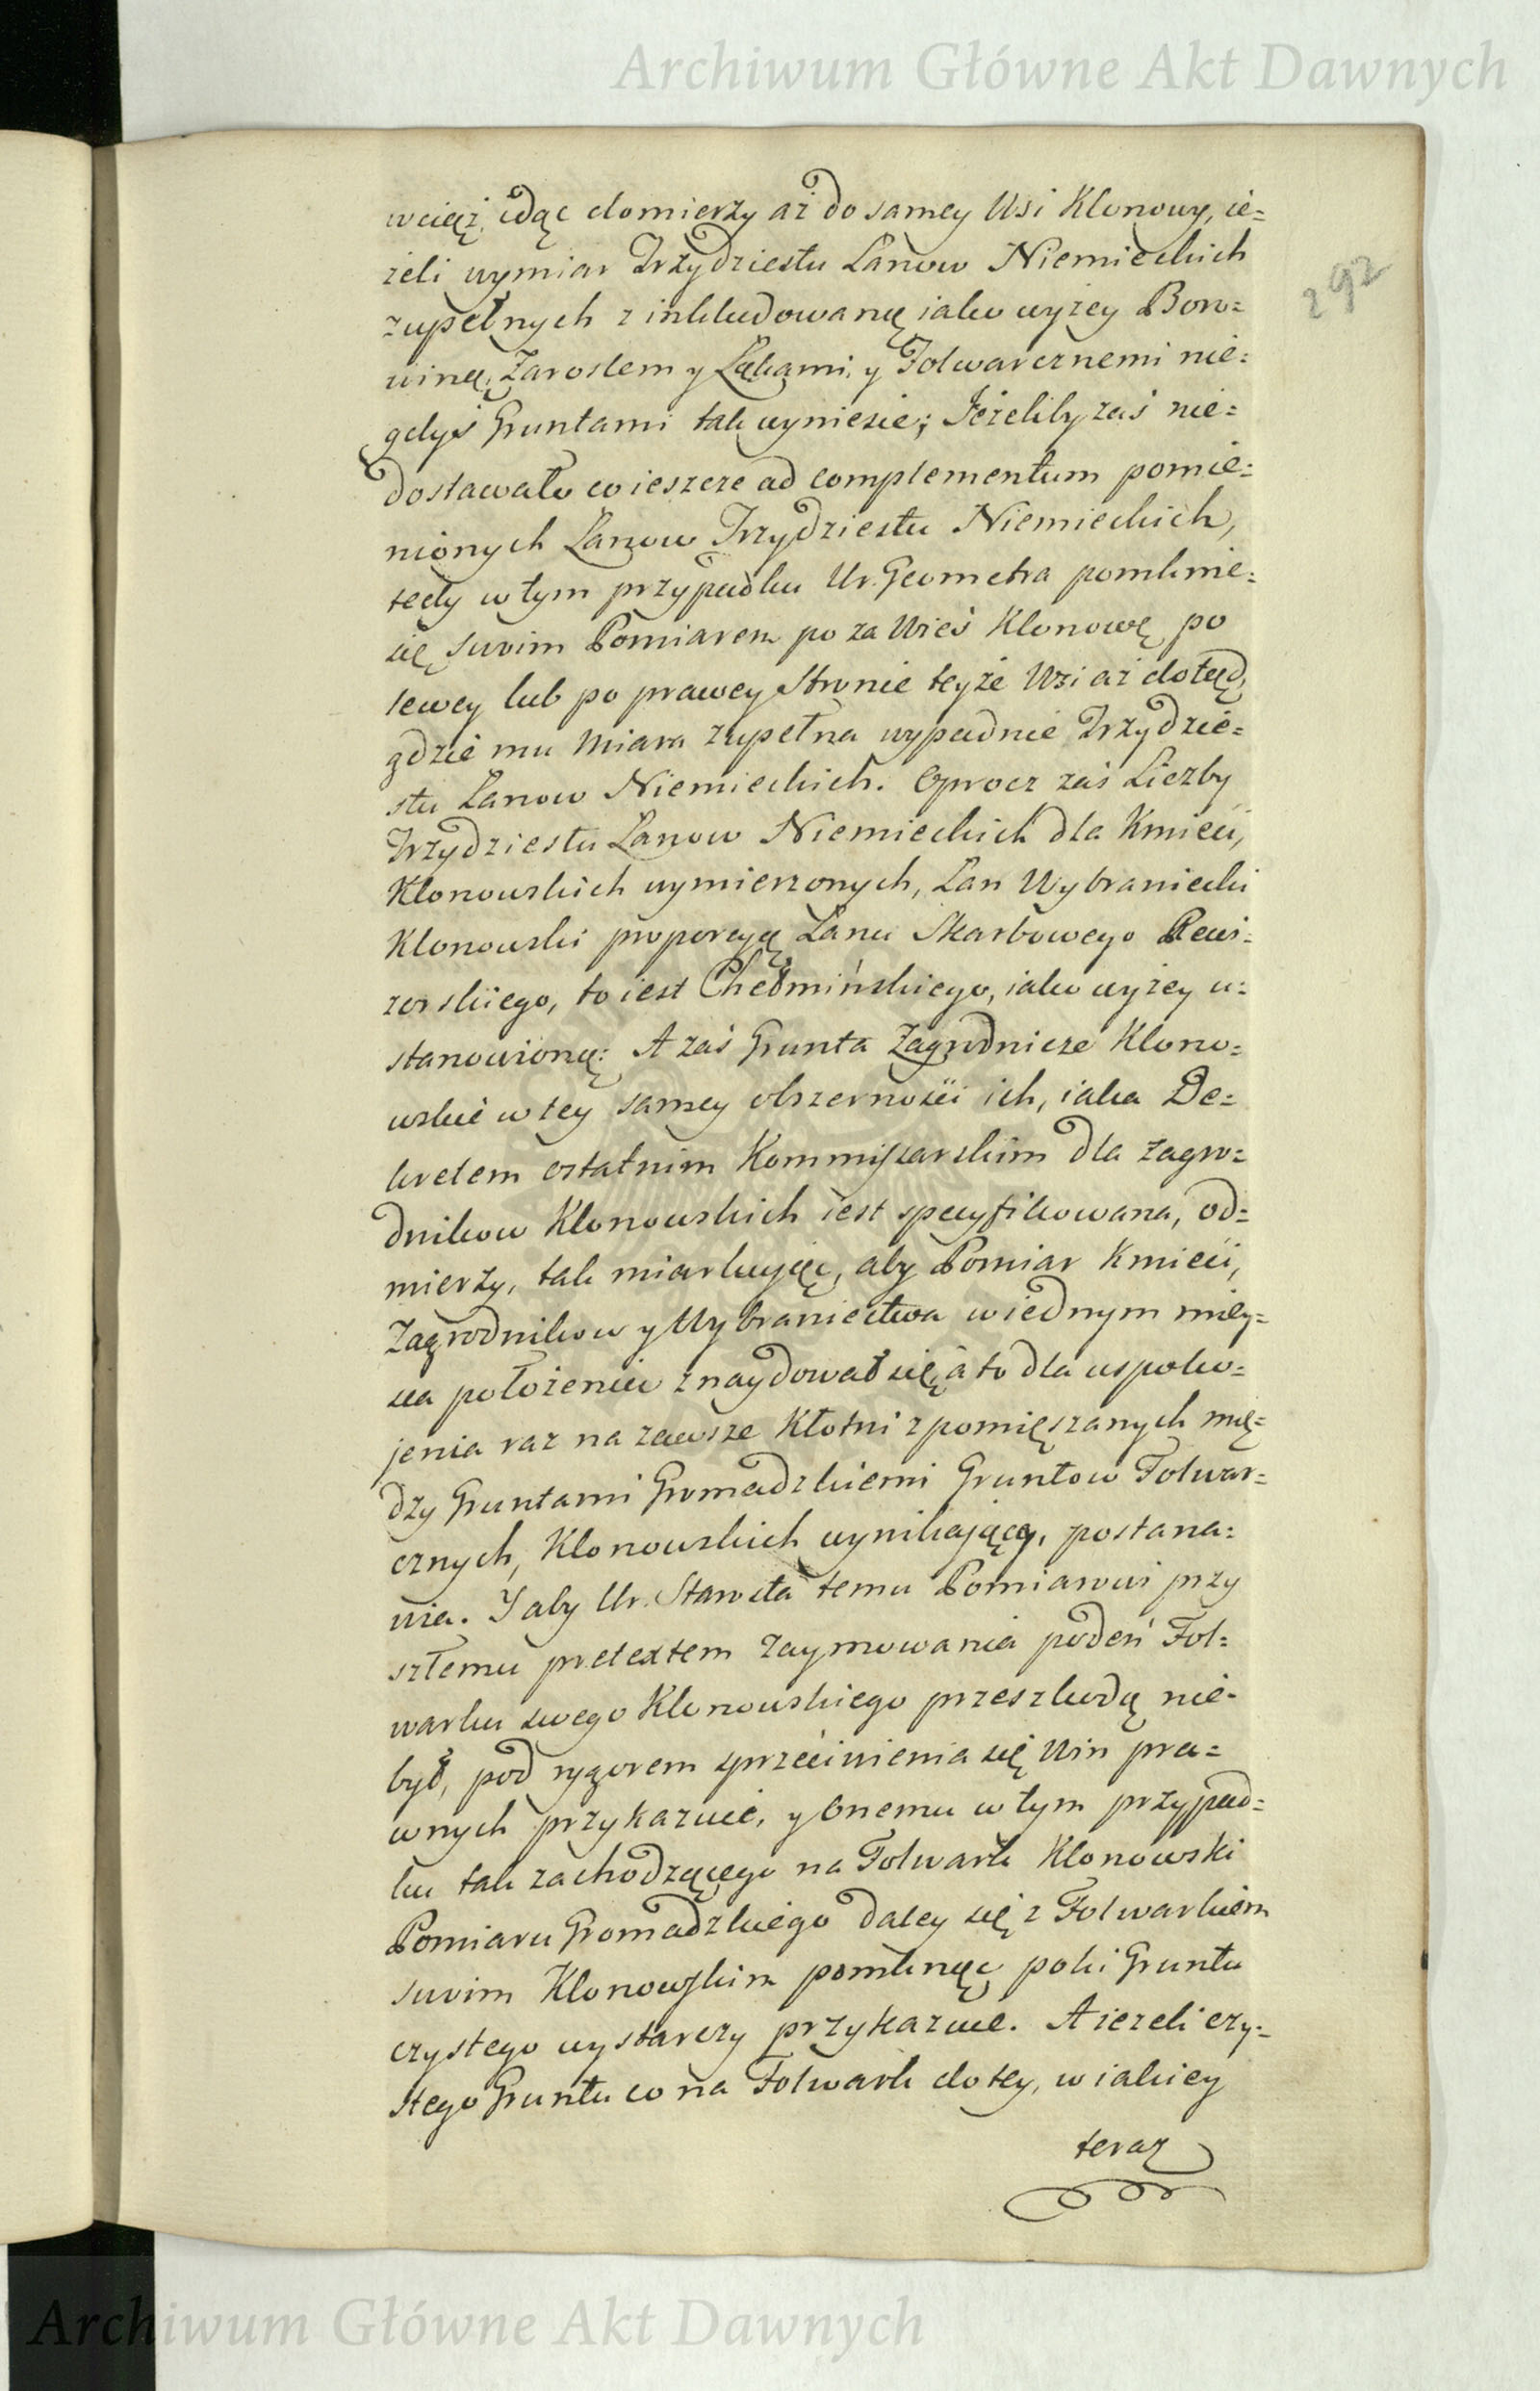 Archiwum Główne Akt Dawnych
292
wciąż idąc domierzy aż do samey Wsi Klonowy, ie=
żeli wymiar Trzydziestu Łanow Niemieckich
zupełnych z inkludowaną iako wyżey Boro=
winą, Zaroslem y Łąkami, y Folwarcznemi nie=
gdyś Gruntami tak wyniesie; Jeżeliby zaś nie=
dostawało co ieszcze ad complementum pomie=
nionych Łanow Trzydziestu Niemieckich,
tedy w tym przypadku Ur. Geometra pomknie=
się swoim Pomiarem po za Wieś Klonowę po
lewey lub po prawey Stronie teyże Wsi aż dotąd,
gdzie mu Miara zupełna wypadnie Trzydzie=
stu Łanow Niemieckich. Oprocz zaś Liczby
Trzydziestu Łanow Niemieckich dla Kmieci,
Klonowskich wymierzonych, Łan Wybraniecki
Klonowski proporcyą Łanu Skarbowego Rewi=
zorskiego, to iest Chełmińskiego, iako wyżey u=
stanowioną: A zaś Grunta Zagrodnicze Klono=
wskie w tey samey obszerności ich, iaka De=
kretem ostatnim Kommissarskim dla Zagro=
dnikow Klonowskich iest specyfikowana, od=
mierzy, tak miarkując, aby Pomiar Kmieci,
Zagrodnikow y Wybraniectwa w iednym miey=
sca położeniu znaydował się, a to dla uspoko=
jenia raz na zawsze Kłotni z pomięszanych mię=
dzy Gruntami Gromadzkiemi Gruntow Folwar=
cznych, Klonowskich wynikającey, postana=
wia. Y aby Ur. Starosta temu Pomiarowi przy
szłemu pretextem zaymowania podeń Fol=
warku swego Klonowskiego przeszkodą nie=
był, pod rygorem sprzeciwienia się Win pra=
wnych przykazuie, y onemu w tym przypad=
ku tak zachodzącego na Folwark Klonowski
Pomiaru Gromadzkiego daley się z Folwarkiem
swoim Klonowskim pomknąć poki Gruntu
czystego wystarczy przykazuie. A ieżeli czy=
stego Gruntu co na Folwark do tey, w iakiey
teraz
Archiwum Główne Akt Dawnych